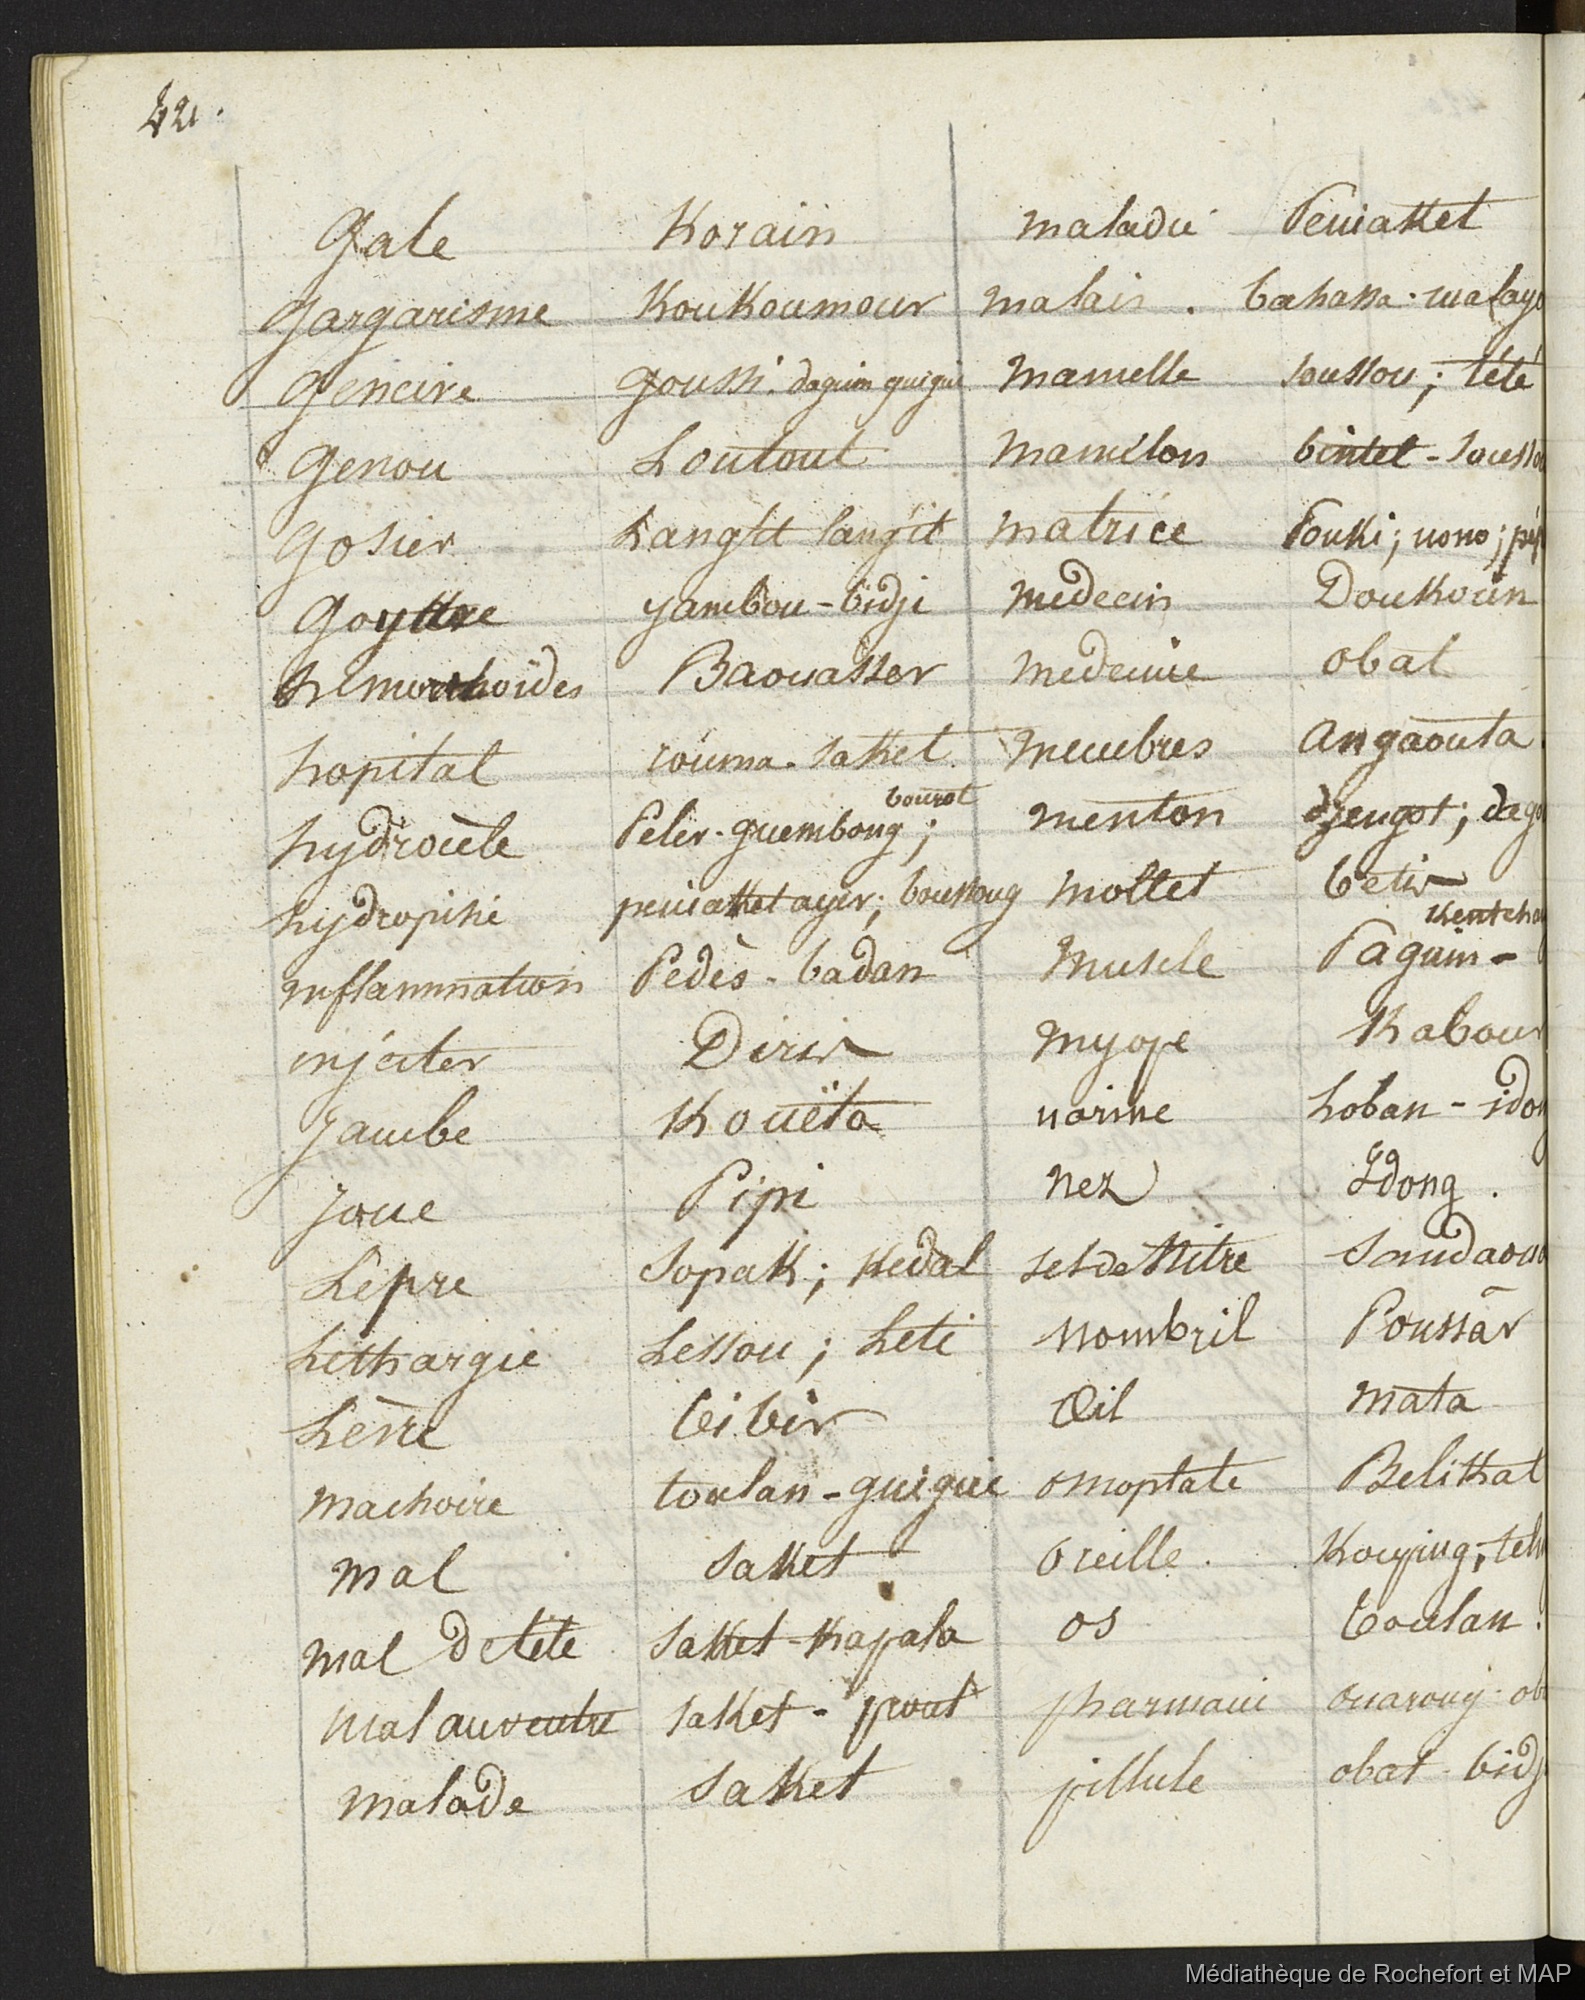 42.
Gale Korain maladie Peniaket
Gargarisme KouKoumour malais . bahassa. malayo
Gencive Goussi. daguin guigui mamelle soussou; tété
Genou Loutout mamélon bintet - soussou
Gosier Langit langit matrice Pouki; nono; pép
Goyttre gambou - bidji médecin DouKoun
hémorrhoïdes Baouasser médecine obat
hopital rouma. saket membres angaouta.
hydrocèle Peler. guembong; bourot menton djengot; dago
hydropisie peniaket ayer; boussoug mollet betis
inflammation Pedès - badan muscle Daguin - Kentcha
injecter Dirir myope Kabour
Jambe Kouëta narine Loban - idon
Joue Pipi nez Idong.
Lèpre Sopak; Kedal sel de Nitre Sendaoua
Lethargie Lessou; Leti Nombril Poussar
Lèvre bibir Œil mata
machoire toulan - guigui omoplate Belikat
mal saket oreille. Kouping; tel
mal de tête saket - Kapala os toulan.
mal au ventre saket - prout pharmacie ouarong. ob
malade saket pillule obat - bidj
Médiathèque de Rochefort et MAP